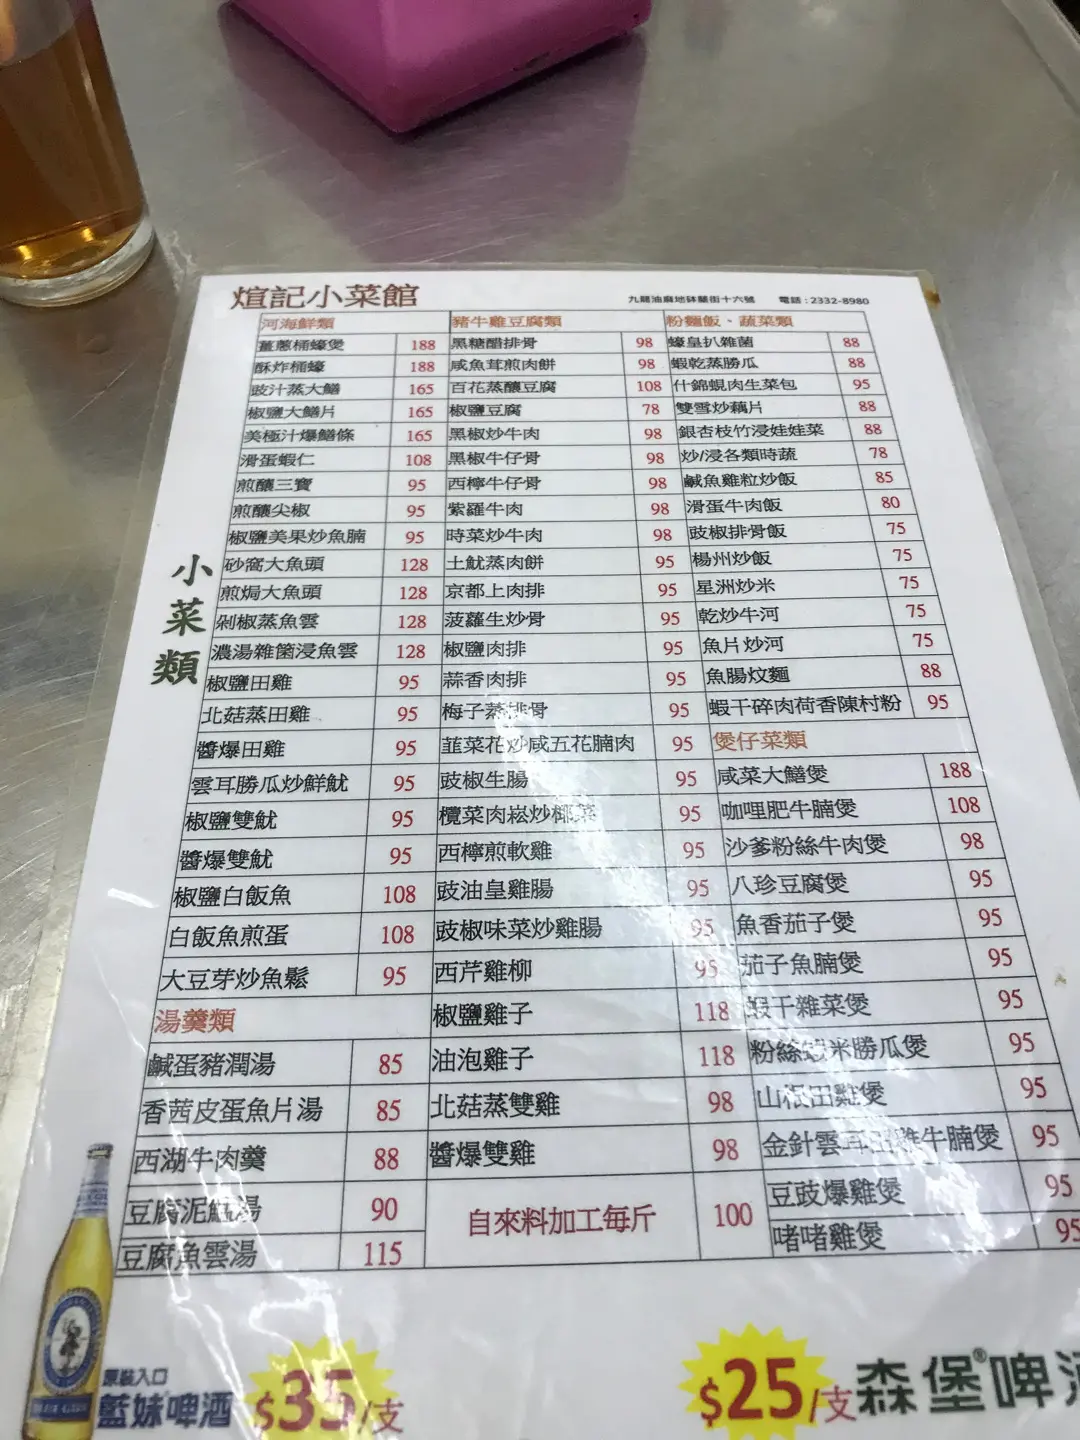 煊記小菜館
九龍油麻地砵蘭街十六號 電話：2332-8980
小菜類
河海鮮類
薑蔥桶蠔煲 188
酥炸桶蠔 188
豉汁蒸大鱔 165
椒鹽大鱔片 165
美極汁爆鱔條 165
滑蛋蝦仁 108
煎釀三寶 95
煎釀尖椒 95
椒鹽美果炒魚腩 95
砂窩大魚頭 128
煎焗大魚頭 128
剁椒蒸魚雲 128
濃湯雜箘浸魚雲 128
椒鹽田雞 95
北菇蒸田雞 95
醬爆田雞 95
雲耳勝瓜炒鮮魷 95
椒鹽雙魷 95
醬爆雙魷 95
椒鹽白飯魚 108
白飯魚煎蛋 108
大豆芽炒魚鬆 95
湯羹類
鹹蛋豬潤湯 85
香茜皮蛋魚片湯 85
西湖牛肉羹 88
豆腐泥鯭湯 90
豆腐魚雲湯 115
豬牛雞豆腐類
黑糖醋排骨 98
咸魚茸煎肉餅 98
百花蒸釀豆腐 108
椒鹽豆腐 78
黑椒炒牛肉 98
黑椒牛仔骨 98
西檸牛仔骨 98
紫羅牛肉 98
時菜炒牛肉 98
土魷蒸肉餅 95
京都上肉排 95
菠蘿生炒骨 95
椒鹽肉排 95
蒜香肉排 95
梅子蒸排骨 95
韮菜花炒咸五花腩肉 95
豉椒生腸 95
欖菜肉崧炒椰菜 95
西檸煎軟雞 95
豉油皇雞腸 95
豉椒味菜炒雞腸 95
西芹雞柳 95
椒鹽雞子 118
油泡雞子 118
北菇蒸雙雞 98
醬爆雙雞 98
自來料加工每斤 100
粉麵飯、蔬菜類
蠔皇扒雜菌 88
蝦乾蒸勝瓜 88
什錦蜆肉生菜包 95
雙雪炒藕片 88
銀杏枝竹浸娃娃菜 88
炒/浸各類時蔬 78
鹹魚雞粒炒飯 85
滑蛋牛肉飯 80
豉椒排骨飯 75
楊州炒飯 75
星洲炒米 75
乾炒牛河 75
魚片炒河 75
魚腸炆麵 88
蝦干碎肉荷香陳村粉 95
煲仔菜類
咸菜大鱔煲 188
咖哩肥牛腩煲 108
沙爹粉絲牛肉煲 98
八珍豆腐煲 95
魚香茄子煲 95
茄子魚腩煲 95
蝦干雜菜煲 95
粉絲蝦米勝瓜煲 95
山根田雞煲 95
金針雲耳田雞牛腩煲 95
豆豉爆雞煲 95
啫啫雞煲 95
原裝入口
藍妹啤酒 $35/支
$25/支 森堡®啤酒